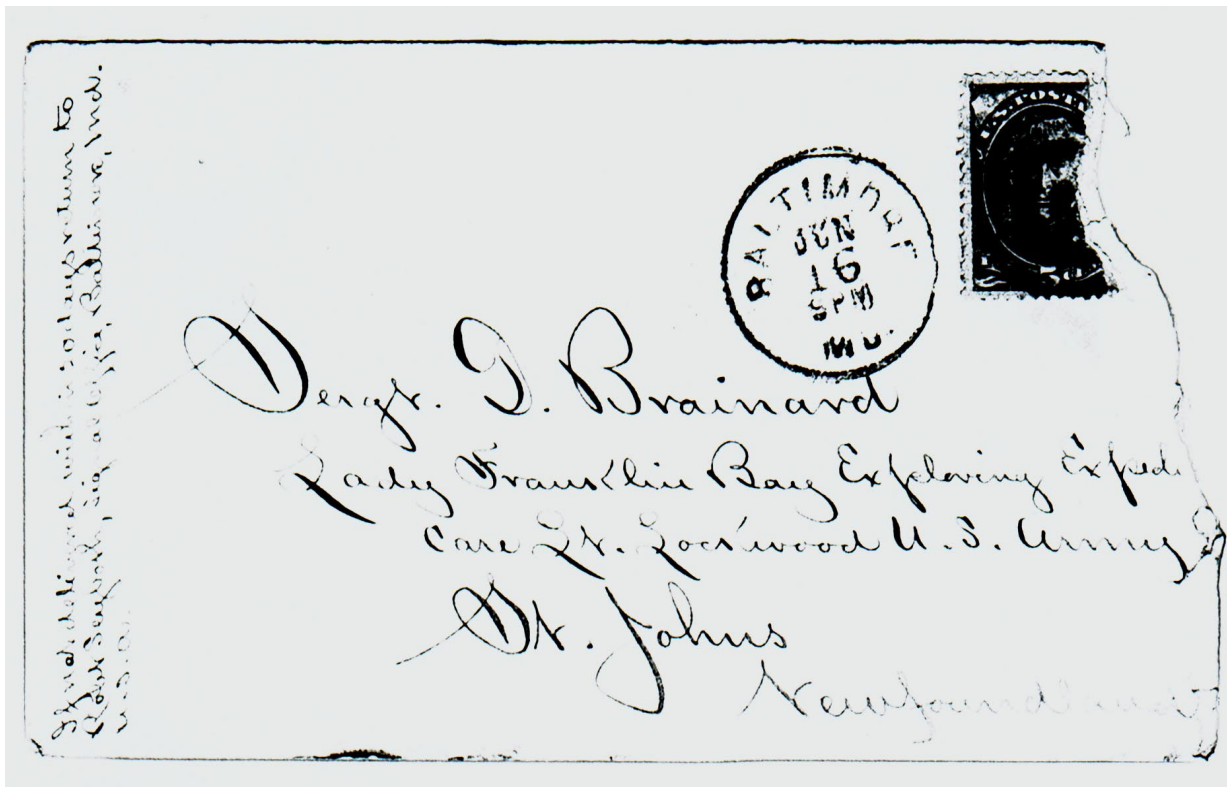 If not delivered within 30 days return to
Signal Office, Baltimore, Md.
U.S.A.
U.S. POST
BALTIMORE
JUN
16
5PM
MD.
Sergt. D. Brainard
Lady Franklin Bay Exploring Exped
Care Lt. Lockwood U.S. Army
St. Johns
Newfoundland